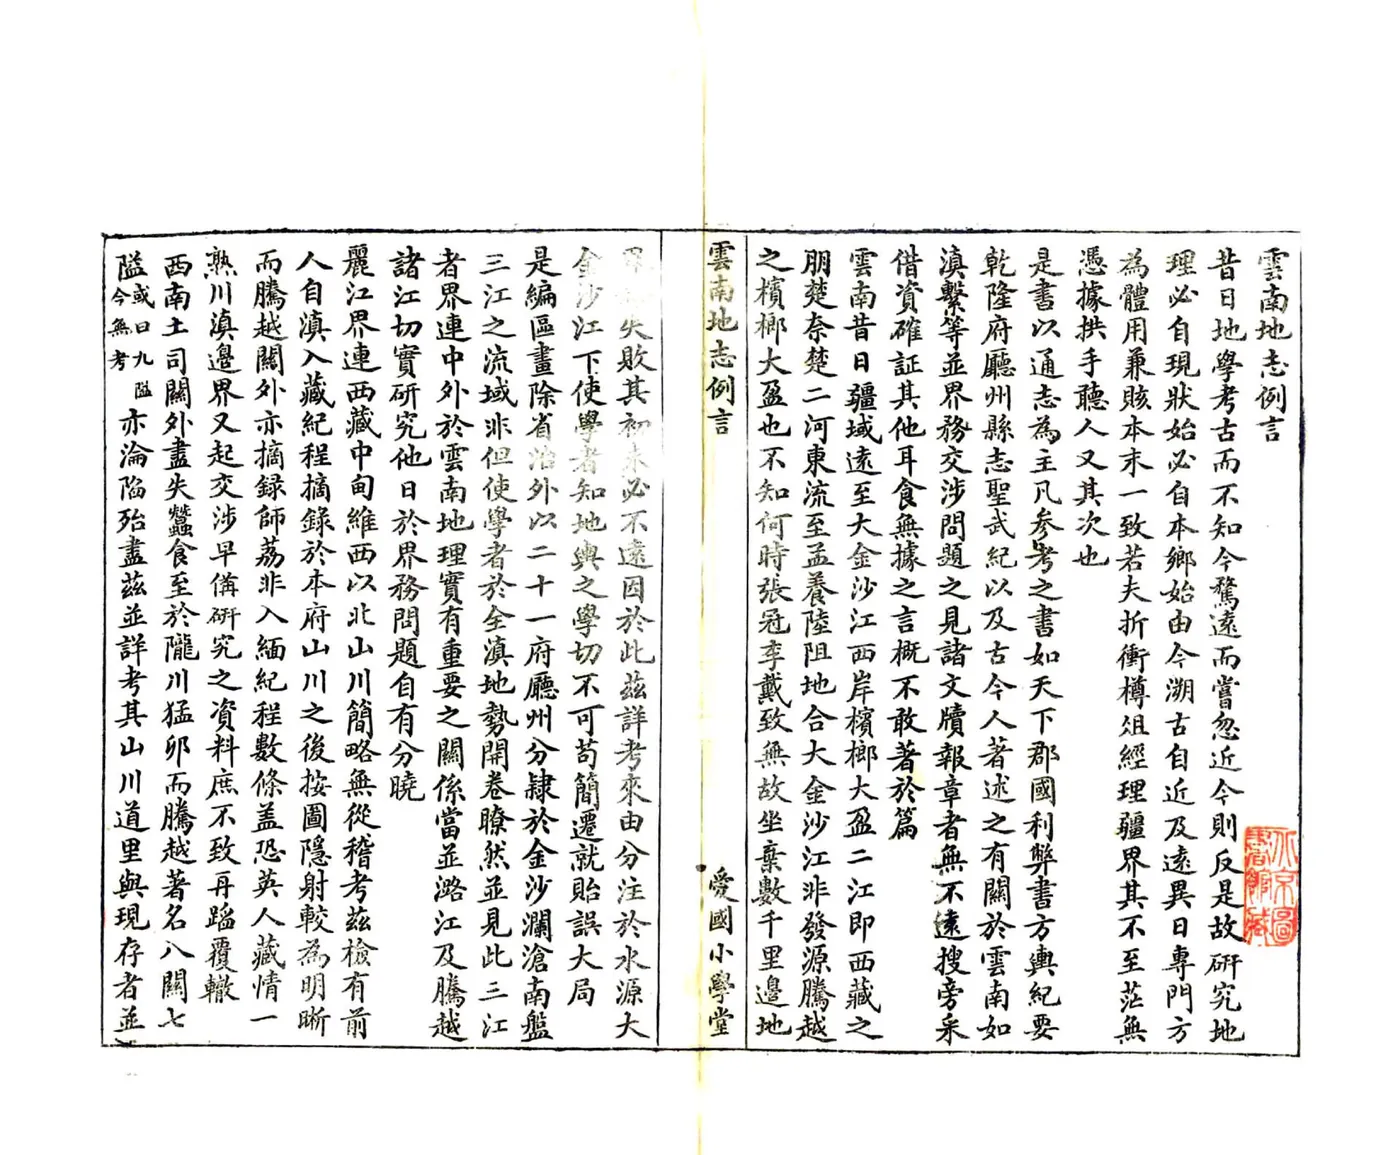 雲南地志例言
昔日地學考古而不知今騖遠而嘗忽近今則反是故研究地
理必自現狀始必自本鄉始由今溯古自近及遠異日專門方
為體用兼賅本末一致若夫折衝樽俎經理疆界其不至茫無
憑據拱手聽人又其次也
是書以通志為主凡參考之書如天下郡國利弊書方輿紀要
乾隆府廳州縣志聖武紀以及古今人著述之有關於雲南如
滇繫等並界務交涉問題之見諸文牘報章者無不遠搜旁采
借資確証其他耳食無據之言概不敢著於篇
雲南昔日疆域遠至大金沙江西岸檳榔大盈二江即西藏之
朋楚奈楚二河東流至孟養陸阻地合大金沙江非發源騰越
之檳榔大盈也不知何時張冠李戴致無故坐棄數千里邊地
雲南地志例言
愛國小學堂
失敗其初未必不遠因於此茲詳考來由分注於水源大
金沙江下使學者知地輿之學切不可苟簡遷就貽誤大局
是編區畫除省治外以二十一府廳州分隸於金沙瀾滄南盤
三江之流域非但使學者於全滇地勢開卷瞭然並見此三江
者界連中外於雲南地理實有重要之關係當並潞江及騰越
諸江切實研究他日於界務問題自有分曉
麗江界連西藏中甸維西以北山川簡略無從稽考茲檢有前
人自滇入藏紀程摘錄於本府山川之後按圖隱射較為明晰
而騰越關外亦摘録師荔非入緬紀程數條蓋恐英人藏情一
熟川滇邊界又起交涉早備研究之資料庶不致再蹈覆轍
西南土司關外盡失蠶食至於隴川猛卯而騰越著名八關七
隘或曰九隘今無考亦淪陷殆盡茲並詳考其山川道里與現存者並